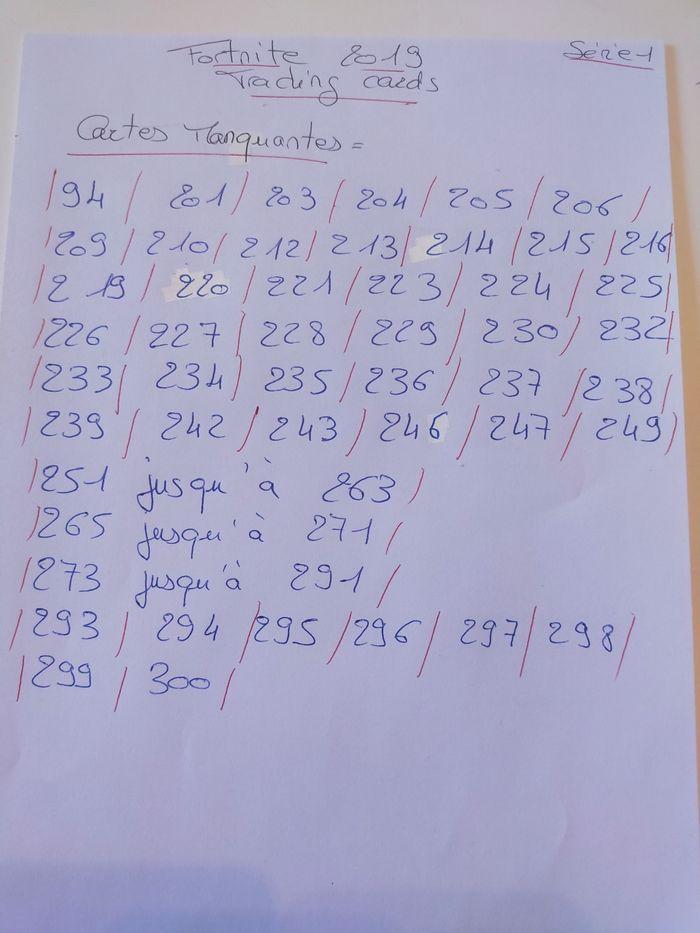 Fortnite 2019 Série 1
Trading cards
Cartes Manquantes =
/94/ 201/ 203/204/205/206/
/209/210/212/213/214/215/216/
/219/220/221/223/224/225/
/226/227/228/229/230/232/
/233/234/235/236/237/238/
/239/242/243/246/247/249/
/251 jusqu'à 263/
/265 jusqu'à 271/
/273 jusqu'à 291/
/293/294/295/296/297/298/
/299/300/